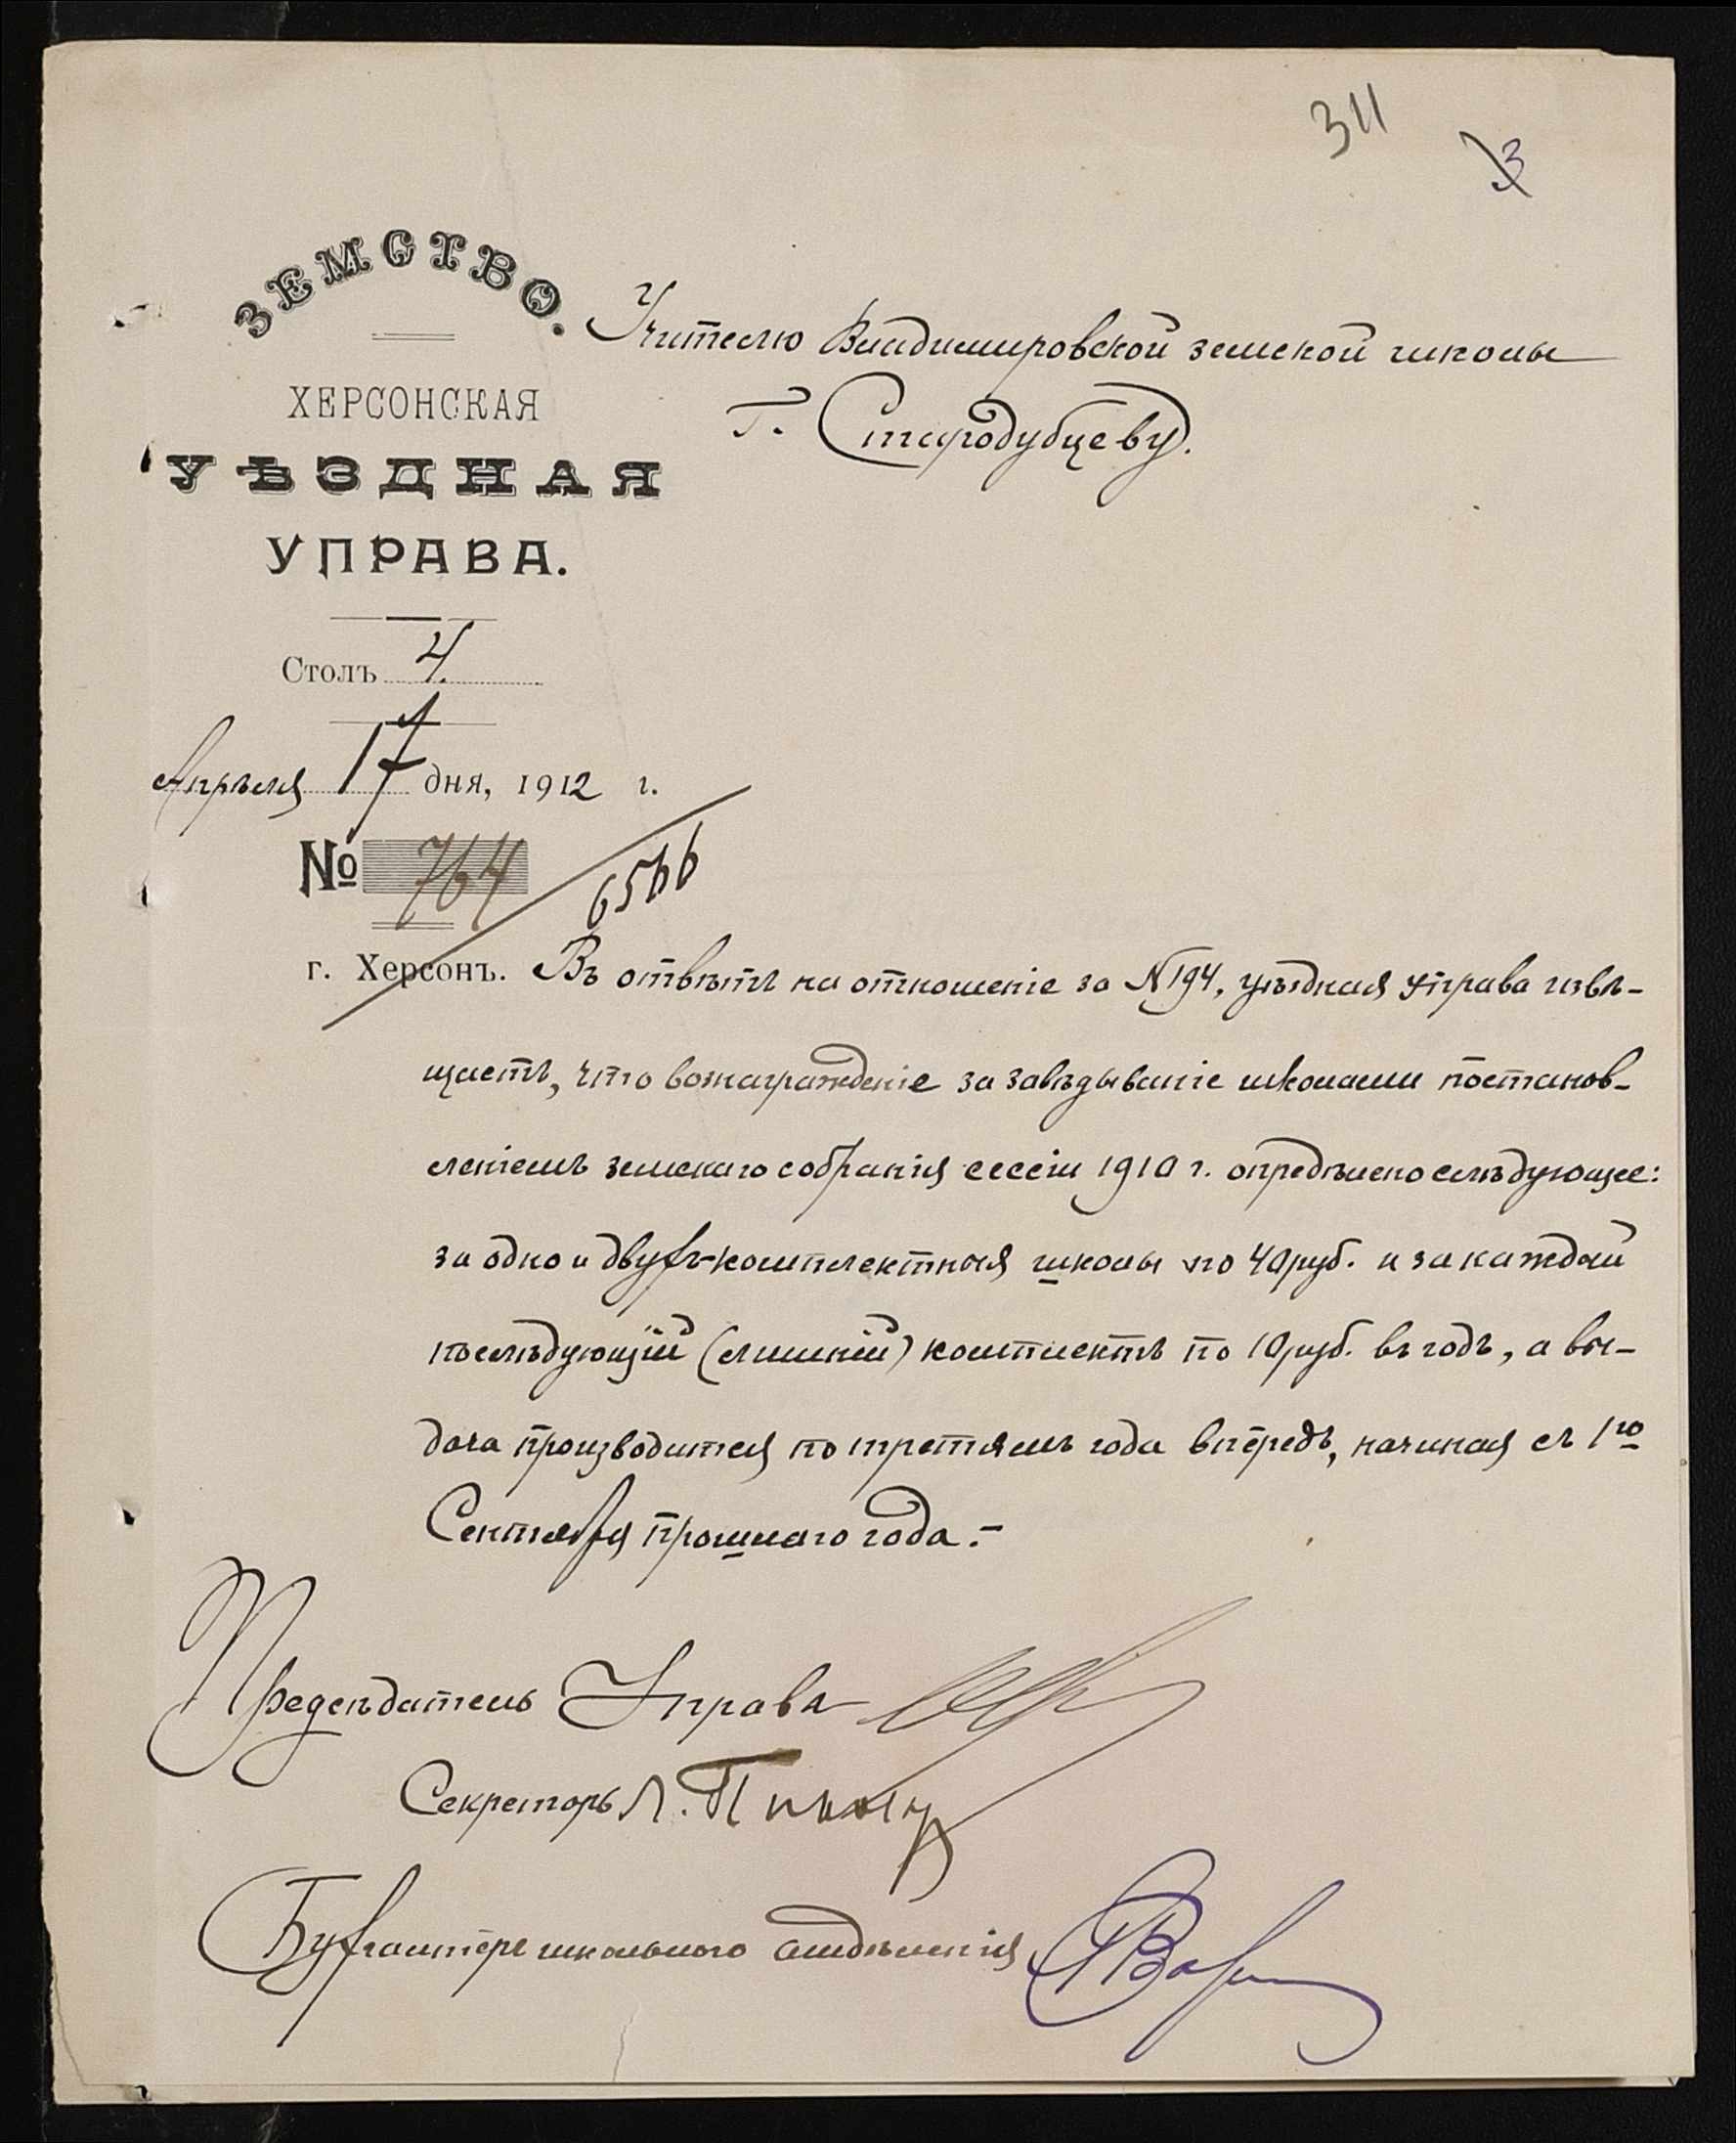 311
3
ЗЕМСТВО.
Учителю Владимировской земской школы
Г. Стародубцеву.
ХЕРСОНСКАЯ
УѢЗДНАЯ
УПРАВА.
Столъ 4.
Апрѣля 17 дня, 1912 г.
№ 764
6566
г. Херсонъ.
Въ отвѣтъ на отношеніе за N 194, уѣздная Управа извѣ-
щаетъ, что вознагражденіе за завѣдываніе школами постанов-
леніемъ земскаго собранія сессіи 1910 г. опредѣлено слѣдующее:
за одно и двухъ-комплектныя школы по 40 руб. и за каждый
послѣдующій (лишній) комплектъ по 10 руб. въ годъ, а вы-
дача производится по третямъ года впередъ, начиная съ 1го
Сентября прошлаго года.-
Предсѣдатель Управы
Секретарь Л.
Бухгалтеръ школьнаго отдѣленія